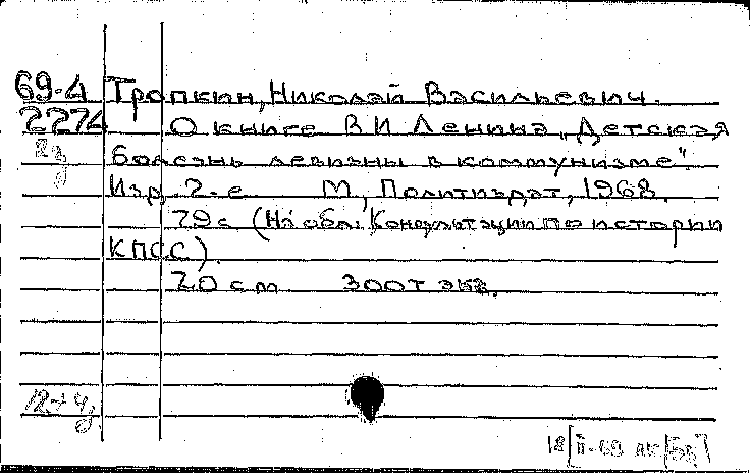 69-4 Тропкин, Николай Васильевич.
2274 О книге В И Ленина „Детская
болезнь левизны в коммунизме".
Изд. 2-е М, Политиздат, 1968.
79 с (На обл: Консультации по истории
КПСС).
20 см 300 т экз.